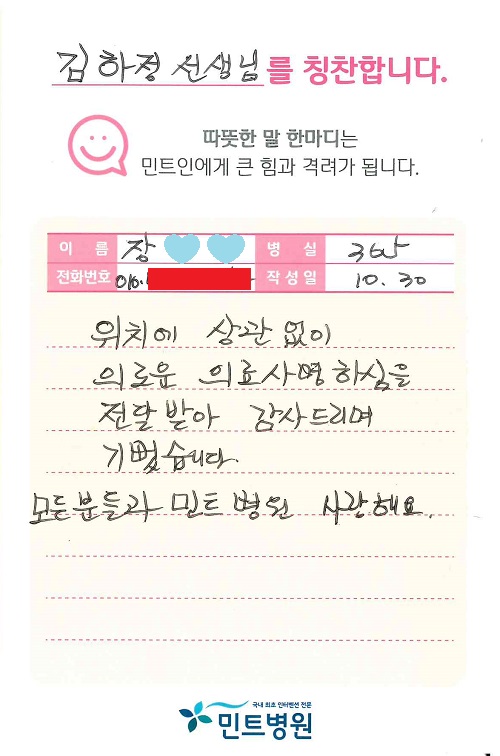 김하정 선생님를 칭찬합니다.
따뜻한 말 한마디는
민트인에게 큰 힘과 격려가 됩니다.
이 름 장 병 실 365
전화번호 010. 작성일 10. 30
위치에 상관없이
의로운 의료사명 하심을
전달받아 감사드리며
기뻤습니다.
모든분들과 민트병원 사랑해요.
국내 최초 인터벤션 전문
민트병원